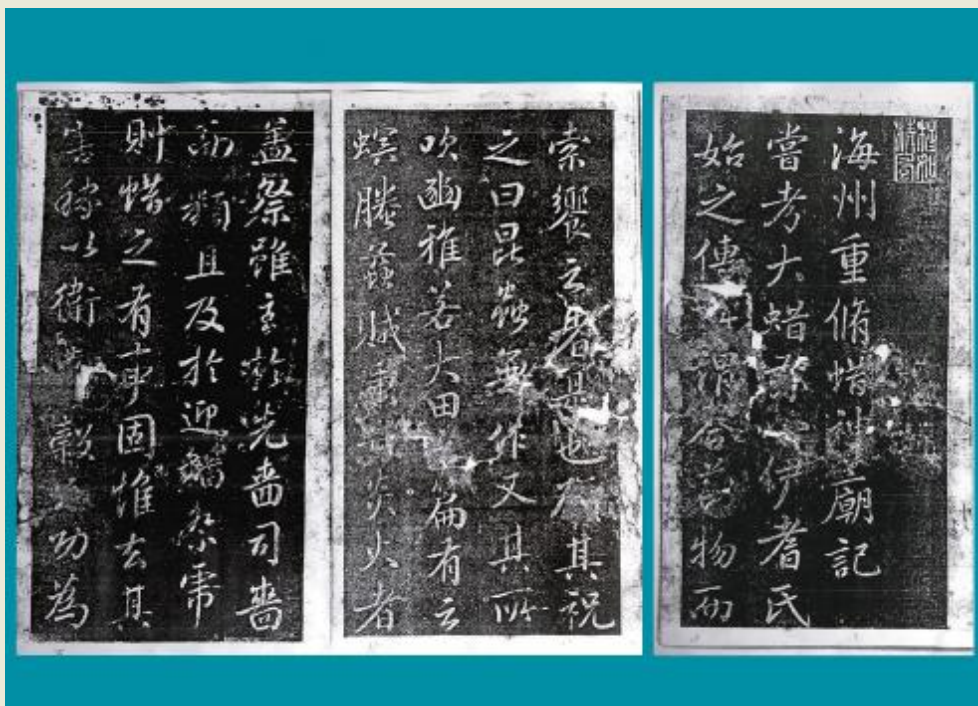 海州重脩蜡神廟記
嘗考大蜡祭 伊耆氏
始之傳 謂合 物而
索饗之者是也 其祝
之曰昆蟲無作又其所
吹豳雅若大田 篇有云
螟螣蟊賊秉 炎火者
蓋祭雖主 先嗇司嗇
而 且及於迎貓祭
則蜡之有事固惟去其
害稼以衛 穀 功為